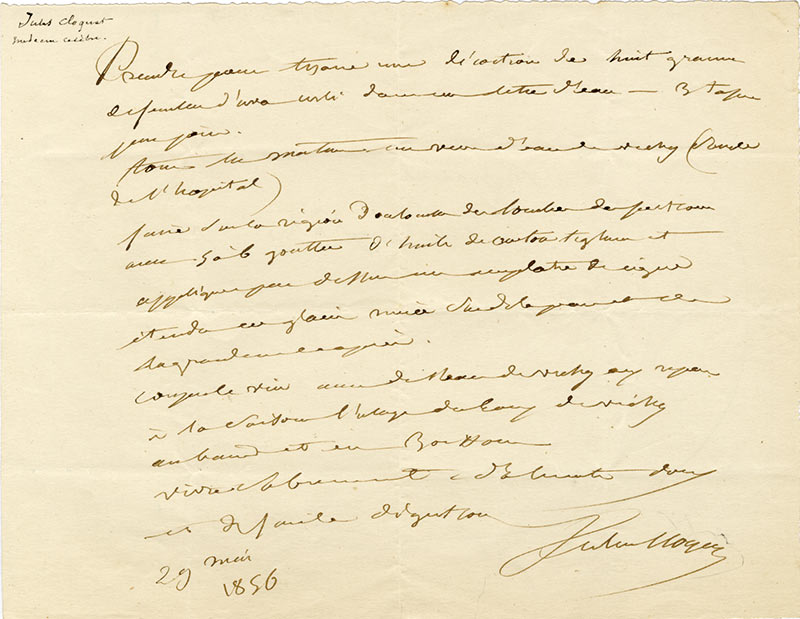 Jules Cloquet
médecin célèbre.
Prendre pour tisane une décoction de huit gramm
de feuilles d'uva ursi dans un litre d'eau — 3 tasses
par jour.
tous les matins un verre d'eau de vichy (Source
de l'hopital)
faire sur la région Douloureuse des frictions
avec 5 à 6 gouttes d'huile de croton tiglium et
appliquer par dessus un emplatre de cigue
étendu en mince sur de la peau et de
la grandeur
couper le vin avec de l'eau de vichy aux repas
à la saison l'usage des Eaux de vichy
en bains et en Boisson
vivre sobrement d'aliments doux
et de facile digestion
Jules Cloquet
29 mai
1856